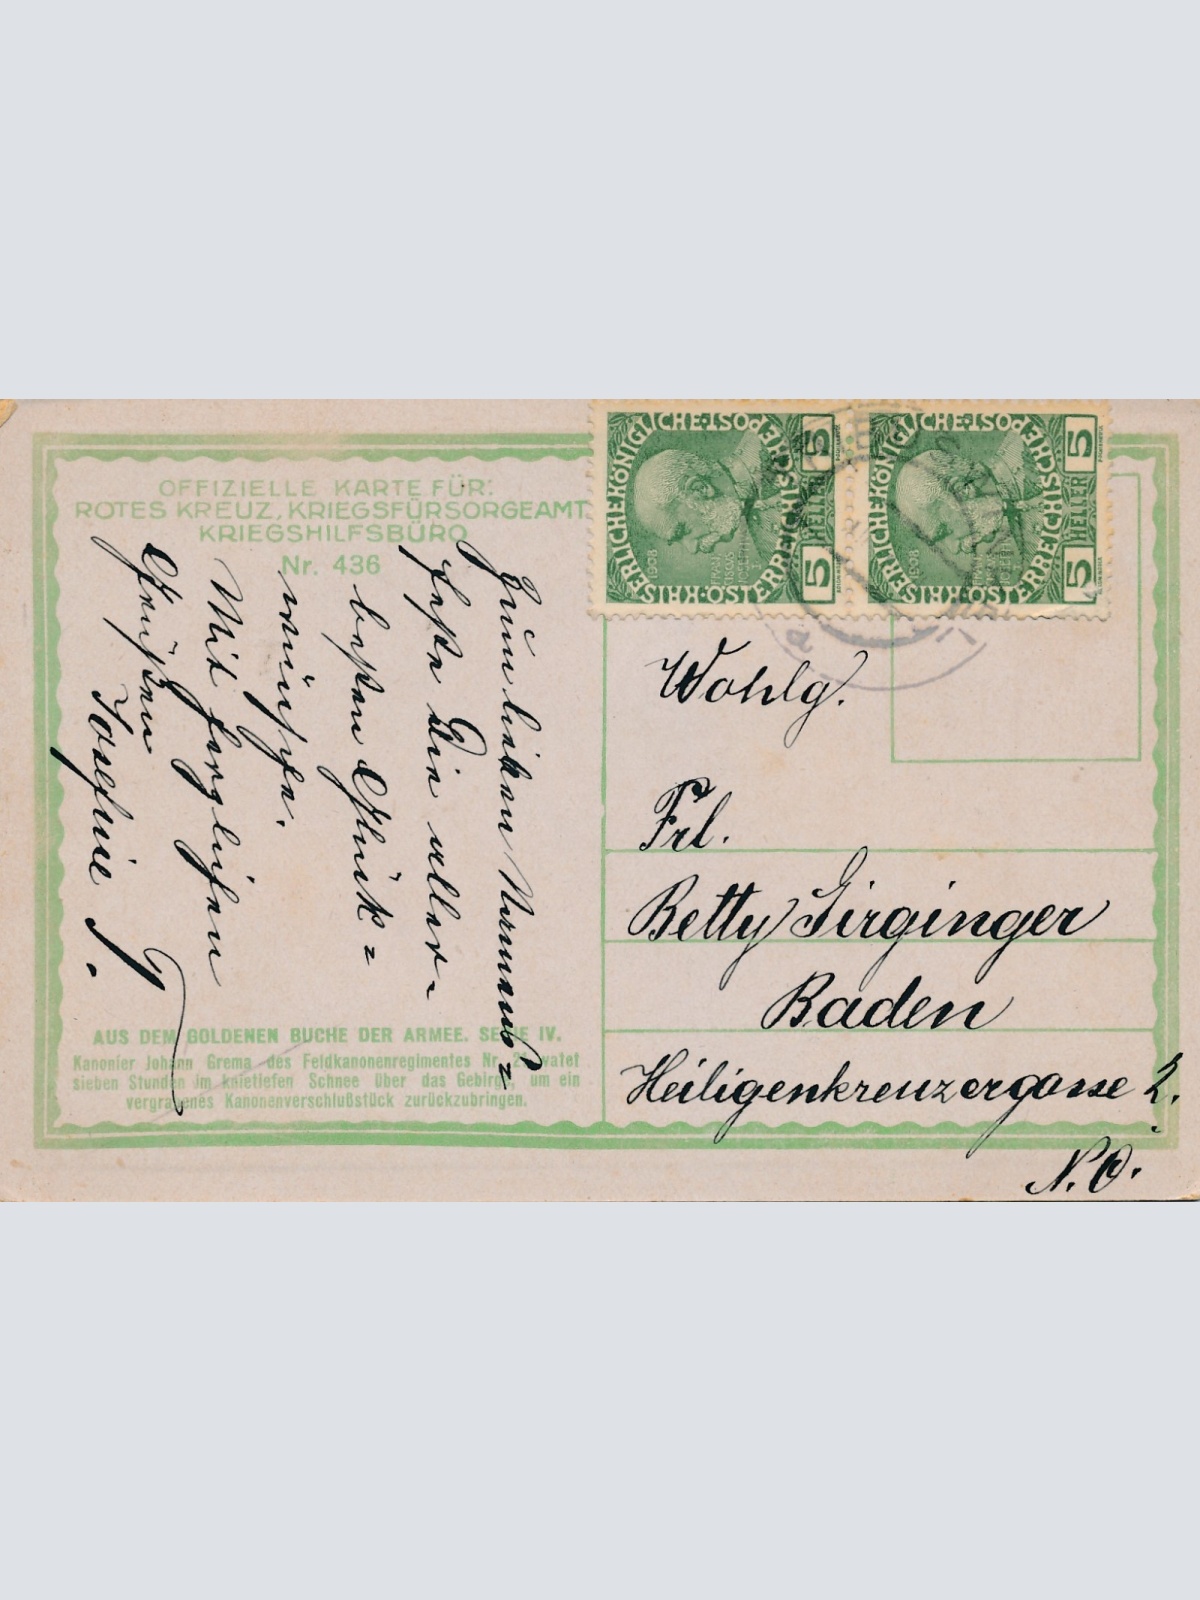 OFFIZIELLE KARTE FÜR:
ROTES KREUZ, KRIEGSFÜRSORGEAMT
KRIEGSHILFSBÜRO
Nr. 436
Zum lieben Namens=
feste Die aller-
besten Glück=
wünsche.
Mit herzlichen
Grüßen
Josefine G.
AUS DEM GOLDENEN BUCHE DER ARMEE. SERIE IV.
Kanonier Johann Grema des Feldkanonenregimentes Nr. 21 watet
sieben Stunden im knietiefen Schnee über das Gebirge, um ein
vergrabenes Kanonenverschlußstück zurückzubringen.
KAISERLICHE KÖNIGLICHE
ÖSTERREICHISCHE POST
5 HELLER 5
1908
KAISERLICHE KÖNIGLICHE
ÖSTERREICHISCHE POST
5 HELLER 5
1908
a
Wohlg.
Frl.
Betty Girginger
Baden
Heiligenkreuzergasse 2.
N.Ö.